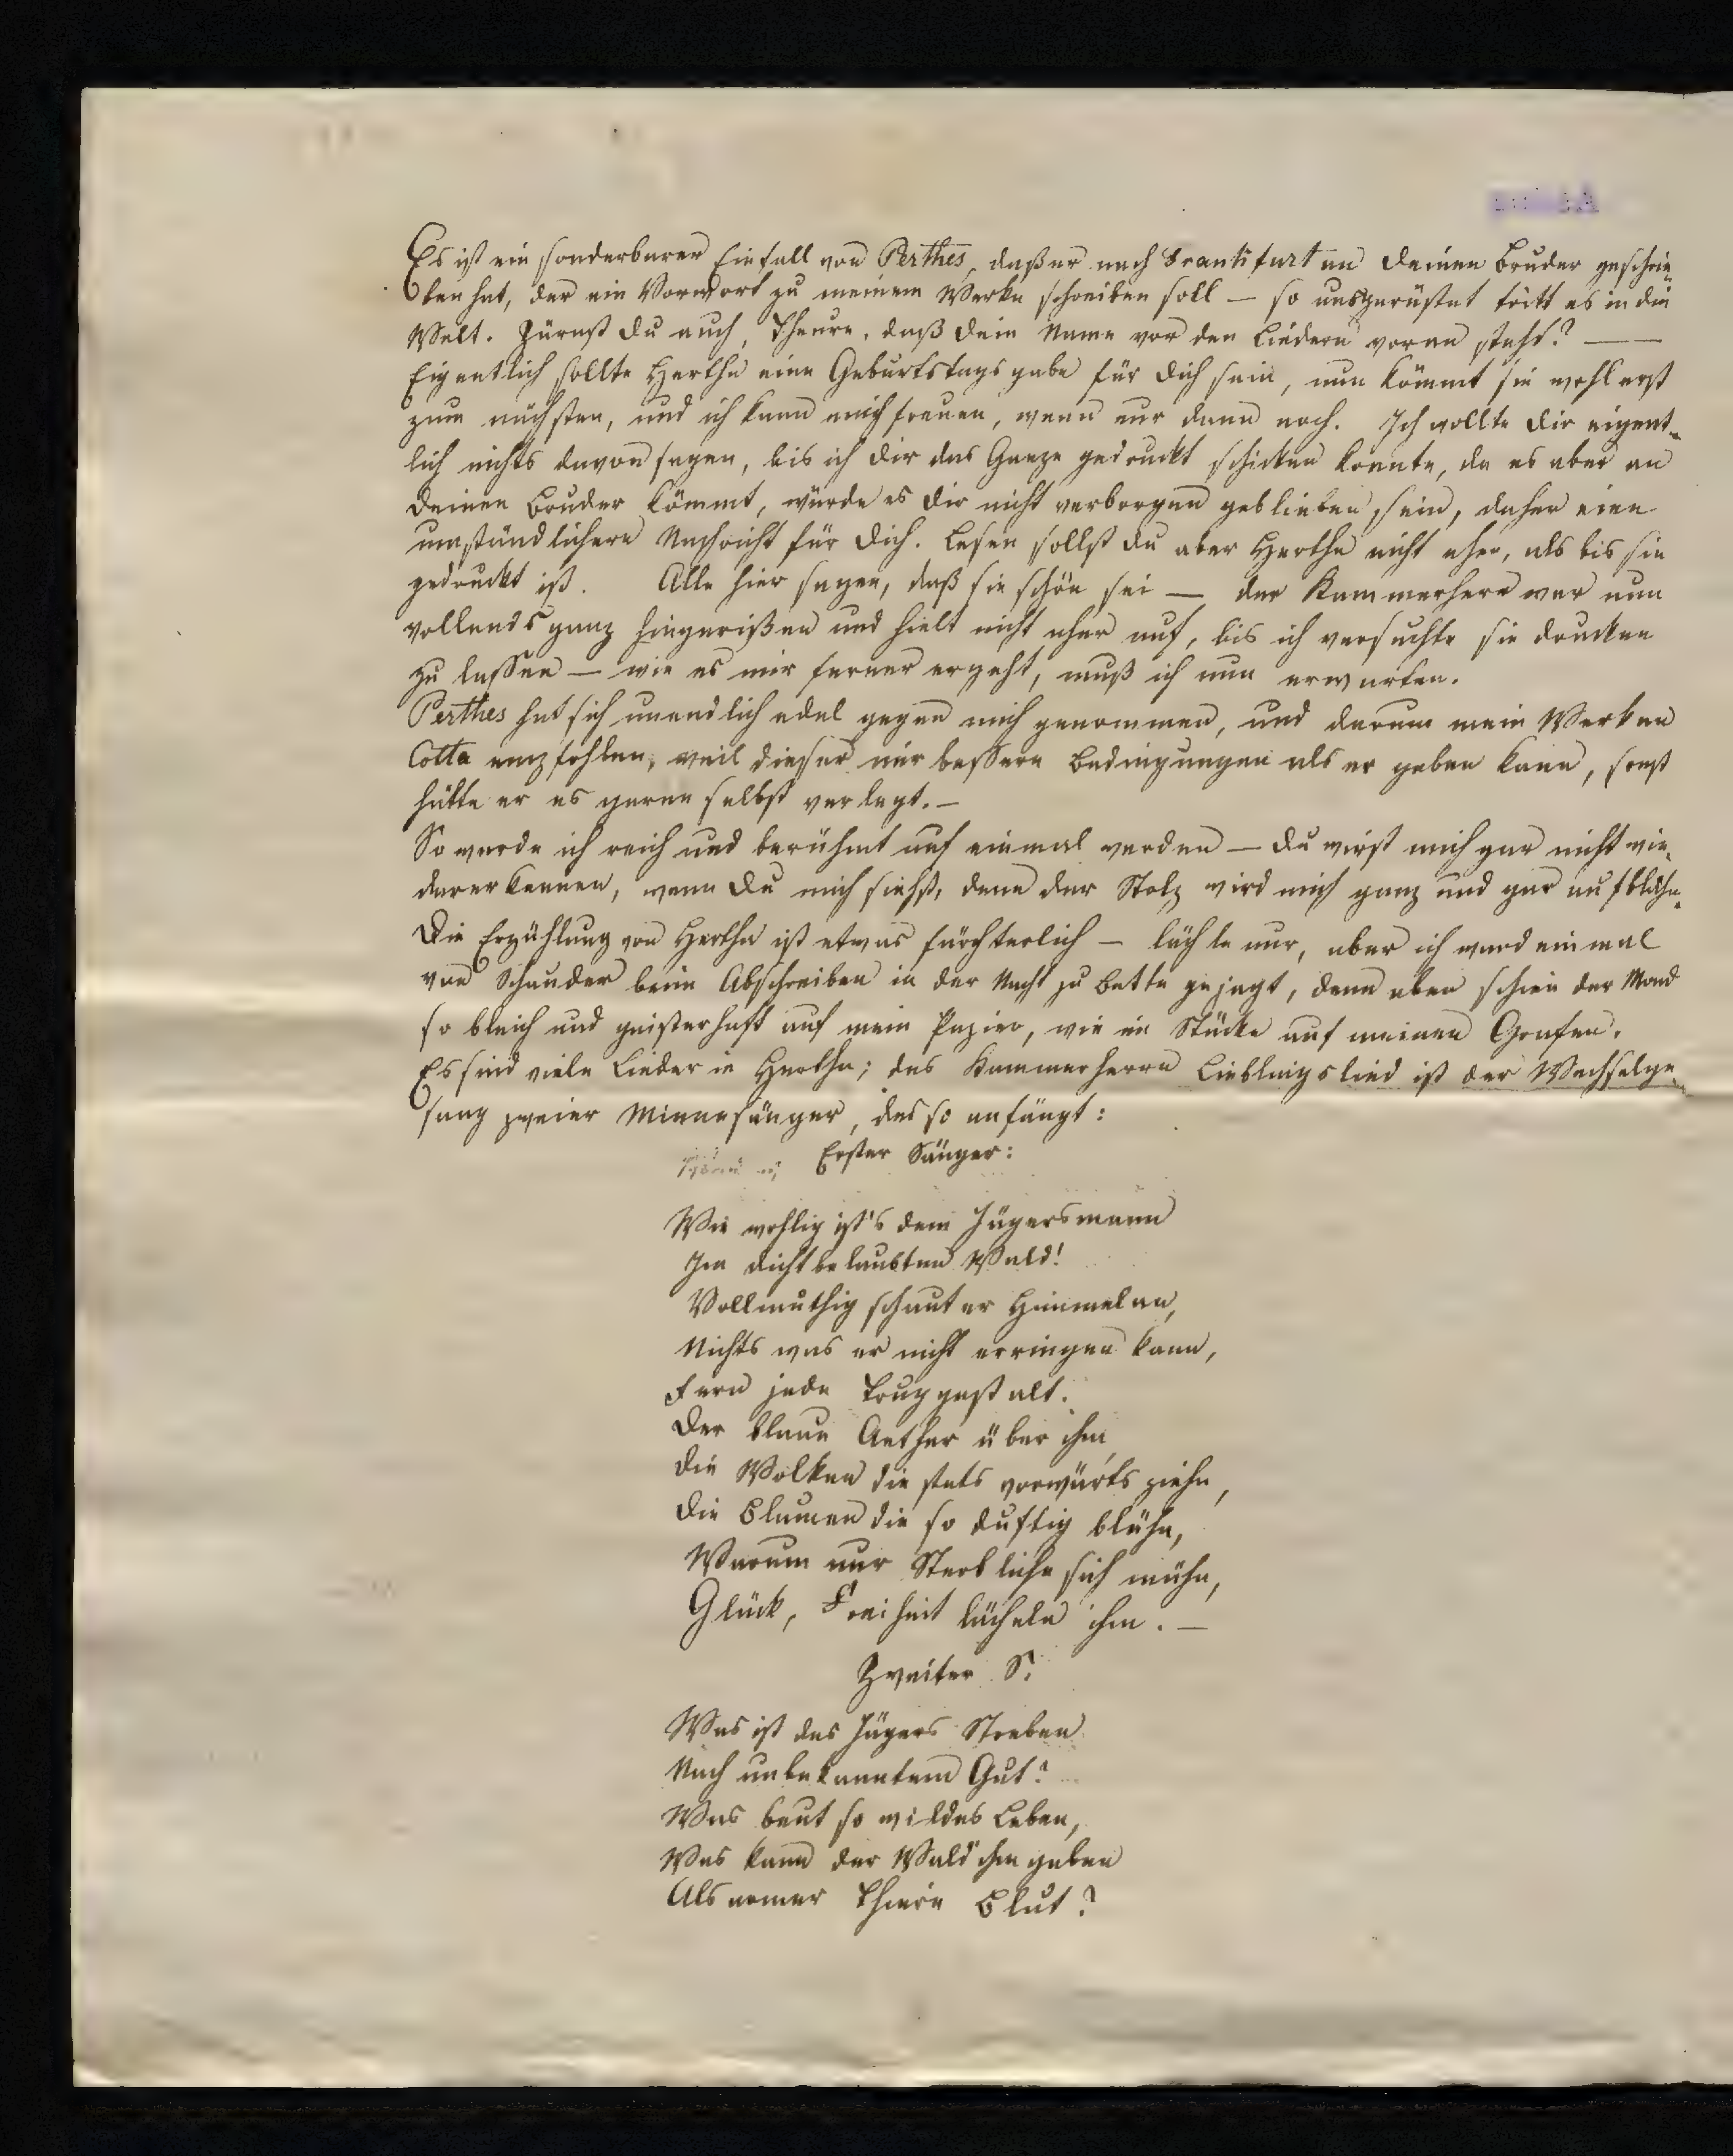 Es ist ein sonderbarer Einfall von Perthes, daß er nach Frankfurt an Deinen Bruder geschrie-
ben hat, der ein Vorwort zu meinem Werke schreiben soll — so ausgerüstet tritt es in die
Welt. Zürnst Du auch, Theure, daß Dein Name vor den Liedern voran steht? —
Eigentlich sollte Hertha eine Geburtstagsgabe für Dich sein, nun kömmt sie wohl erst
zum nächsten, und ich kann mich freuen, wenn nur dann noch. Ich wollte Dir eigent-
lich nichts davon sagen, bis ich Dir das Ganze gedruckt schicken konnte, da es aber an
Deinen Bruder kömmt, würde es Dir nicht verborgen geblieben sein, daher eine
umständlichere Nachricht für Dich. Lesen sollst Du aber Hertha nicht eher, als bis sie
gedruckt ist. Alle hier sagen, daß sie schön sei — der Kammerherr war nun
vollends ganz hingerißen und hielt nicht eher auf, bis ich versuchte sie drucken
zu lassen — wie es mir ferner ergeht, muß ich nun erwarten.
Perthes hat sich unendlich edel gegen mich genommen, und darum mein Werk an
Cotta empfohlen, weil dieser mir bessere Bedingungen als er geben kann, sonst
hätte er es gerne selbst verlegt. —
So werde ich reich und berühmt auf einmal werden — Du wirst mich gar nicht wie-
dererkennen, wenn Du mich siehst, denn der Stolz wird mich ganz und gar aufblähn.
Die Erzählung von Hertha ist etwas fürchterlich — lächle nur, aber ich ward einmal
von Schauder beim Abschreiben in der Nacht zu Bette gejagt, denn eben schien der Mond
so bleich und geisterhaft auf mein Papier, wie im Stücke auf meinen Grafen.
Es sind viele Lieder in Hertha; des Kammerherrn Lieblingslied ist der Wechselge-
sang zweier Minnesänger, das so anfängt:
Erster Sänger:
Wie wohlig ist's dem Jägersmann
Im dichtbelaubten Wald!
Vollmuthig schaut er Himmelan,
Nichts was er nicht erringen kann,
Fern jede Truggestalt.
Der blaue Aether über ihm,
Die Wolken die stets vorwärts ziehn,
Die Blumen die so duftig blühn,
Warum nur Sterbliche sich mühn,
Glück, Freiheit lächeln ihm. —
Zweiter S.
Was ist des Jägers Streben
Nach unbekanntem Gut?
Was beut so wildes Leben,
Was kann der Wald ihm geben
Als armer Thiere Blut?